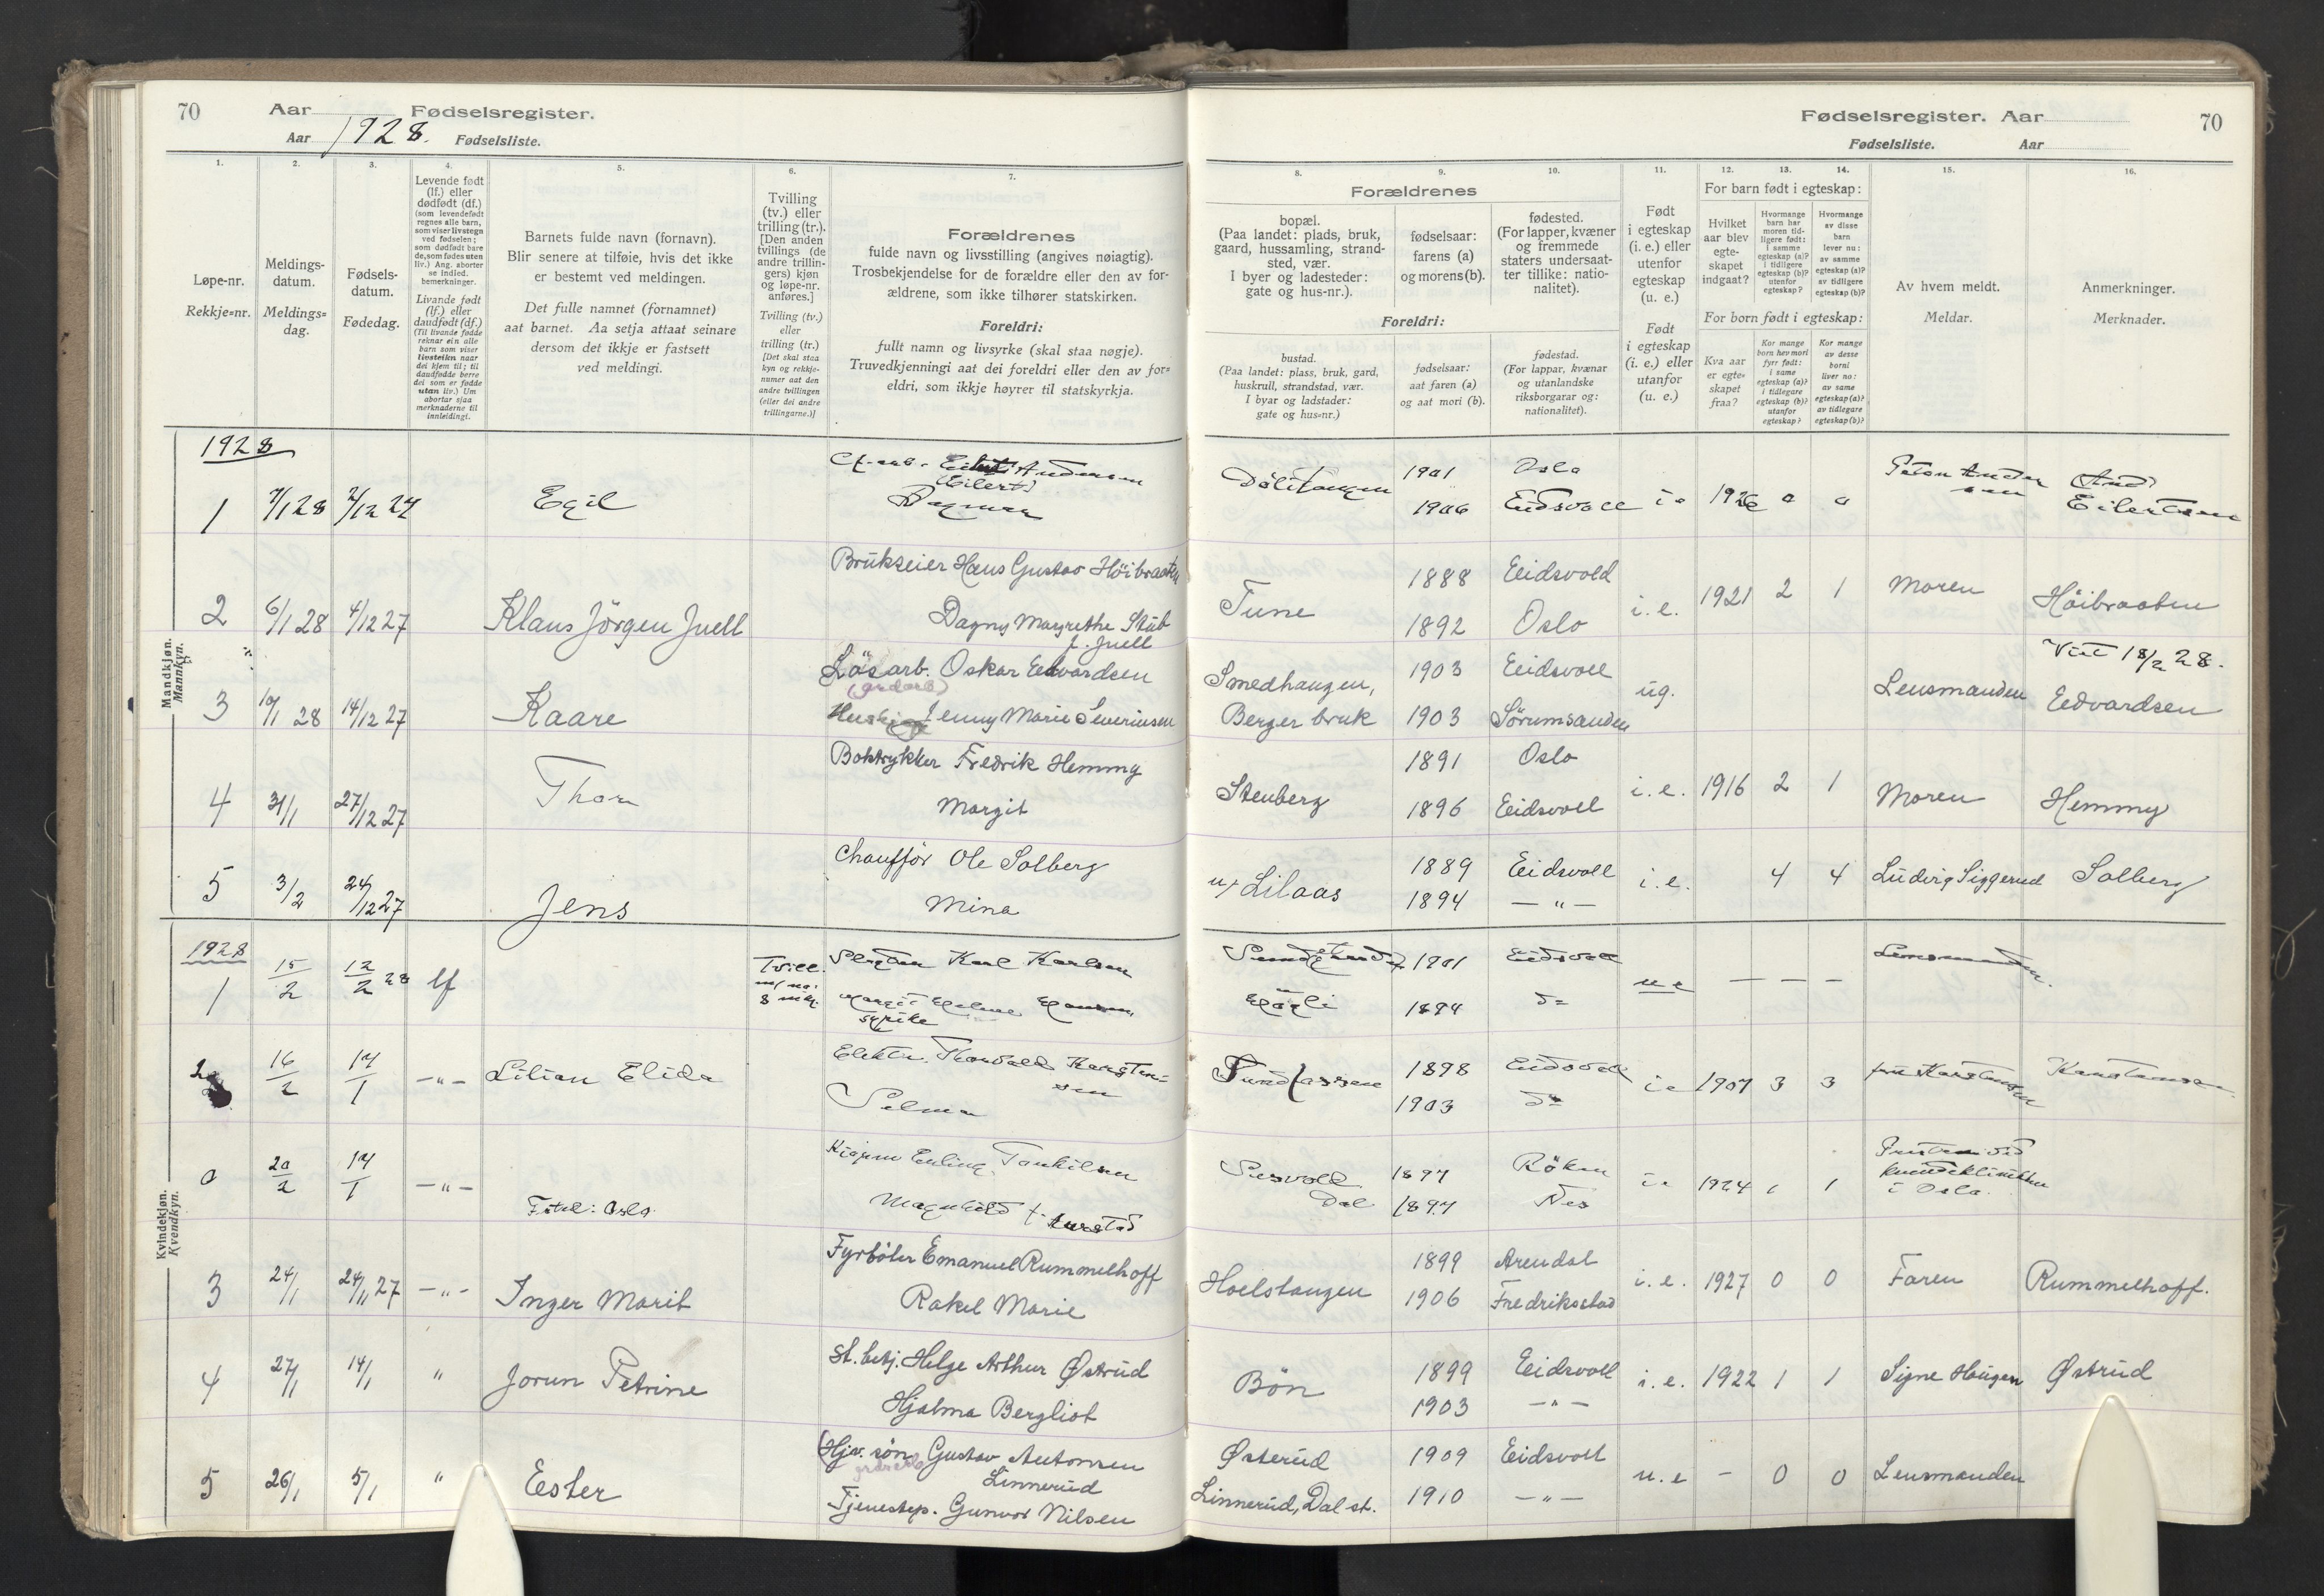 70 Aar Fødselsregister.
Aar 1928. Fødselsliste.
1. 2. 3. 4. 5. 6. 7.
Løpe-nr.
Rekkje=nr.
Meldings-
datum.
Meldings=
dag.
Fødsels-
datum.
Fødedag.
Levende født
(lf.) eller
dødfødt (df.)
(som levendefødt
regnes alle barn,
som viser livstegn
ved fødselen;
som dødfødt bare
de, som fødes uten
liv.) Ang. aborter
se indled.
bemerkninger.
Livande født
(lf.) eller
daudfødt (df.)
(Til livande fødde
reknar ein alle
barn som viser
livsteikn naar
dei kjem til; til
daudfødde berre
dei som er fødde
utan liv.) Um
abortar sjaa
merknaderne til
innleidingi.
Barnets fulde navn (fornavn).
Blir senere at tilføie, hvis det ikke
er bestemt ved meldingen.
Det fulle namnet (fornamnet)
aat barnet. Aa setja attaat seinare
dersom det ikkje er fastsett
ved meldingi.
Tvilling
(tv.) eller
trilling (tr.).
[Den anden
tvillings (de
andre trillin-
gers) kjøn
og løpe-nr.
anføres.]
Tvilling (tv.)
eller
trilling (tr.)
[Det skal staa
kyn og rekkje-
numer aat den
andre tvillingen
(eller dei andre
trillingarne.)]
Forældrenes
fulde navn og livsstilling (angives nøiagtig).
Trosbekjendelse for de forældre eller den av for-
ældrene, som ikke tilhører statskirken.
Foreldri:
fullt namn og livsyrke (skal staa nøgje).
Truvedkjenningi aat dei foreldri eller den av for=
eldri, som ikkje høyrer til statskyrkja.
Mandkjøn.
Mannkyn.
1928
1 7/1 28 2/12 27 Egil
Andersen
(Eilerts)
Dagmar
2 6/1 28 4/12 27 Klaus Jörgen Juell
Brukseier Hans Gustav Höibraaten
Dagny Margrethe Stub
f. Juell
3 10/1 28 14/12 27 Kaare
Lösarb. Oskar Edvardsen
Jenny Marie Severinsen
4 31/1 27/12 27 Thor
Boktrykker Fredrik Hemmy
Margit
5 3/2 24/12 27 Jens
Chaufför Ole Solberg
Mina
Kvindekjøn.
Kvendkyn.
1928
1 15/2 12/2 28 lf
Tvill.
Karl Karlsen
Margit Helene Hansen,
sypike
2 16/2 17/1 —"— Lilian Elida
Elektr. Thorvald Karsten-
sen
Selma
0 20/2 17/1 —"—
Föd: Oslo
Erling Torkilsen
Magnhild f.
3 24/1 24/11 27 —"— Inger Marit
Fyrböter Emanuel Rummelhoff
Rakel Marie
4 27/1 14/1 " Jorun Petrine
St. betj. Helge Arthur Østrud
Hjalma Bergliot
5 26/1 5/1 " Ester
(Hjv. sön Gustav Antonsen
Linnerud
Tjenestep. Gunvor Nilsen
Fødselsregister. Aar 70
Fødselsliste. Aar
8. 9. 10. 11. 12. 13. 14. 15. 16.
Forældrenes
bopæl.
(Paa landet: plads, bruk,
gaard, hussamling, strand-
sted, vær.
I byer og ladesteder:
gate og hus-nr.).
fødselsaar:
farens (a)
og morens (b).
fødested.
(For lapper, kvæner
og fremmede
staters undersaat-
ter tillike: natio-
nalitet).
Foreldri:
bustad.
(Paa landet: plass, bruk, gard,
huskrull, strandstad, vær.
I byar og ladstader:
gate og hus=nr.)
fødselsaar:
aat faren (a)
og aat mori (b).
fødestad.
(For lappar, kvænar
og utanlandske
riksborgarar og:
nationalitet).
Født
i egteskap
(i. e.) eller
utenfor
egteskap
(u. e.)
Født
i egteskap
(i. e.) eller
utanfor
(u. e.)
For barn født i egteskap:
Hvilket
aar blev
egte-
skapet
indgaat?
Hvormange
barn har
moren tid-
ligere født:
i samme
egteskap (a)?
i tidligere
egteskap (b)?
utenfor
egteskap?
Hvormange
av disse
barn
lever nu:
av samme
egteskap (a)?
av tidligere
egteskap (b)?
For born født i egteskap:
Kva aar
er egte=
skapet
fraa?
Kor mange
born hev mori
fyrr født:
i same
egteskap (a)?
i tidlegare
egteskap (b)?
utanfor
egteskap?
Kor mange
av desse
borni
liver no:
av same
egteskap (a)?
av tidlegare
egteskap (b)?
Av hvem meldt.
Meldar.
Anmerkninger.
Merknader.
Dölitangen 1901 Oslo
1906 Eidsvoll i e 1926 0 0
Eilertsen
Tune 1888 Eidsvold
1892 Oslo i. e. 1921 2 1 Moren Höibraaten
Smedhaugen, 1903 Eidsvoll
Berger bruk 1903 Sörumsanden ug. Lensmanden
Vist 18/2 28.
Edvardsen
Stenberg 1891 Oslo
1896 Eidsvoll i. e. 1916 2 1 Moren Hemmy
Lilaas 1889 Eidsvoll
1894 —"— i. e. 4 4 Ludvig Siggerud Solberg
1901 Eidsvoll
1894 do u e — — — Lensmanden.
Sundfossen 1898 Eidsvoll
1903 do i e 3 3 fru Karstensen Karstensen
Dal 1897 Röken
1897 Nes i e 1924 1 1
kvindeklinikken
i Oslo.
Hoelstangen 1899 Arendal
1906 Fredrikstad i. e. 1927 0 0 Faren Rummelhoff.
Bön 1899 Eidsvoll
1903 —"— i. e. 1922 1 1 Signe Haugen Østrud
Østerud 1909 Eidsvoll
Linnerud, Dal st. 1910 —"— u. e - 0 0 Lensmanden